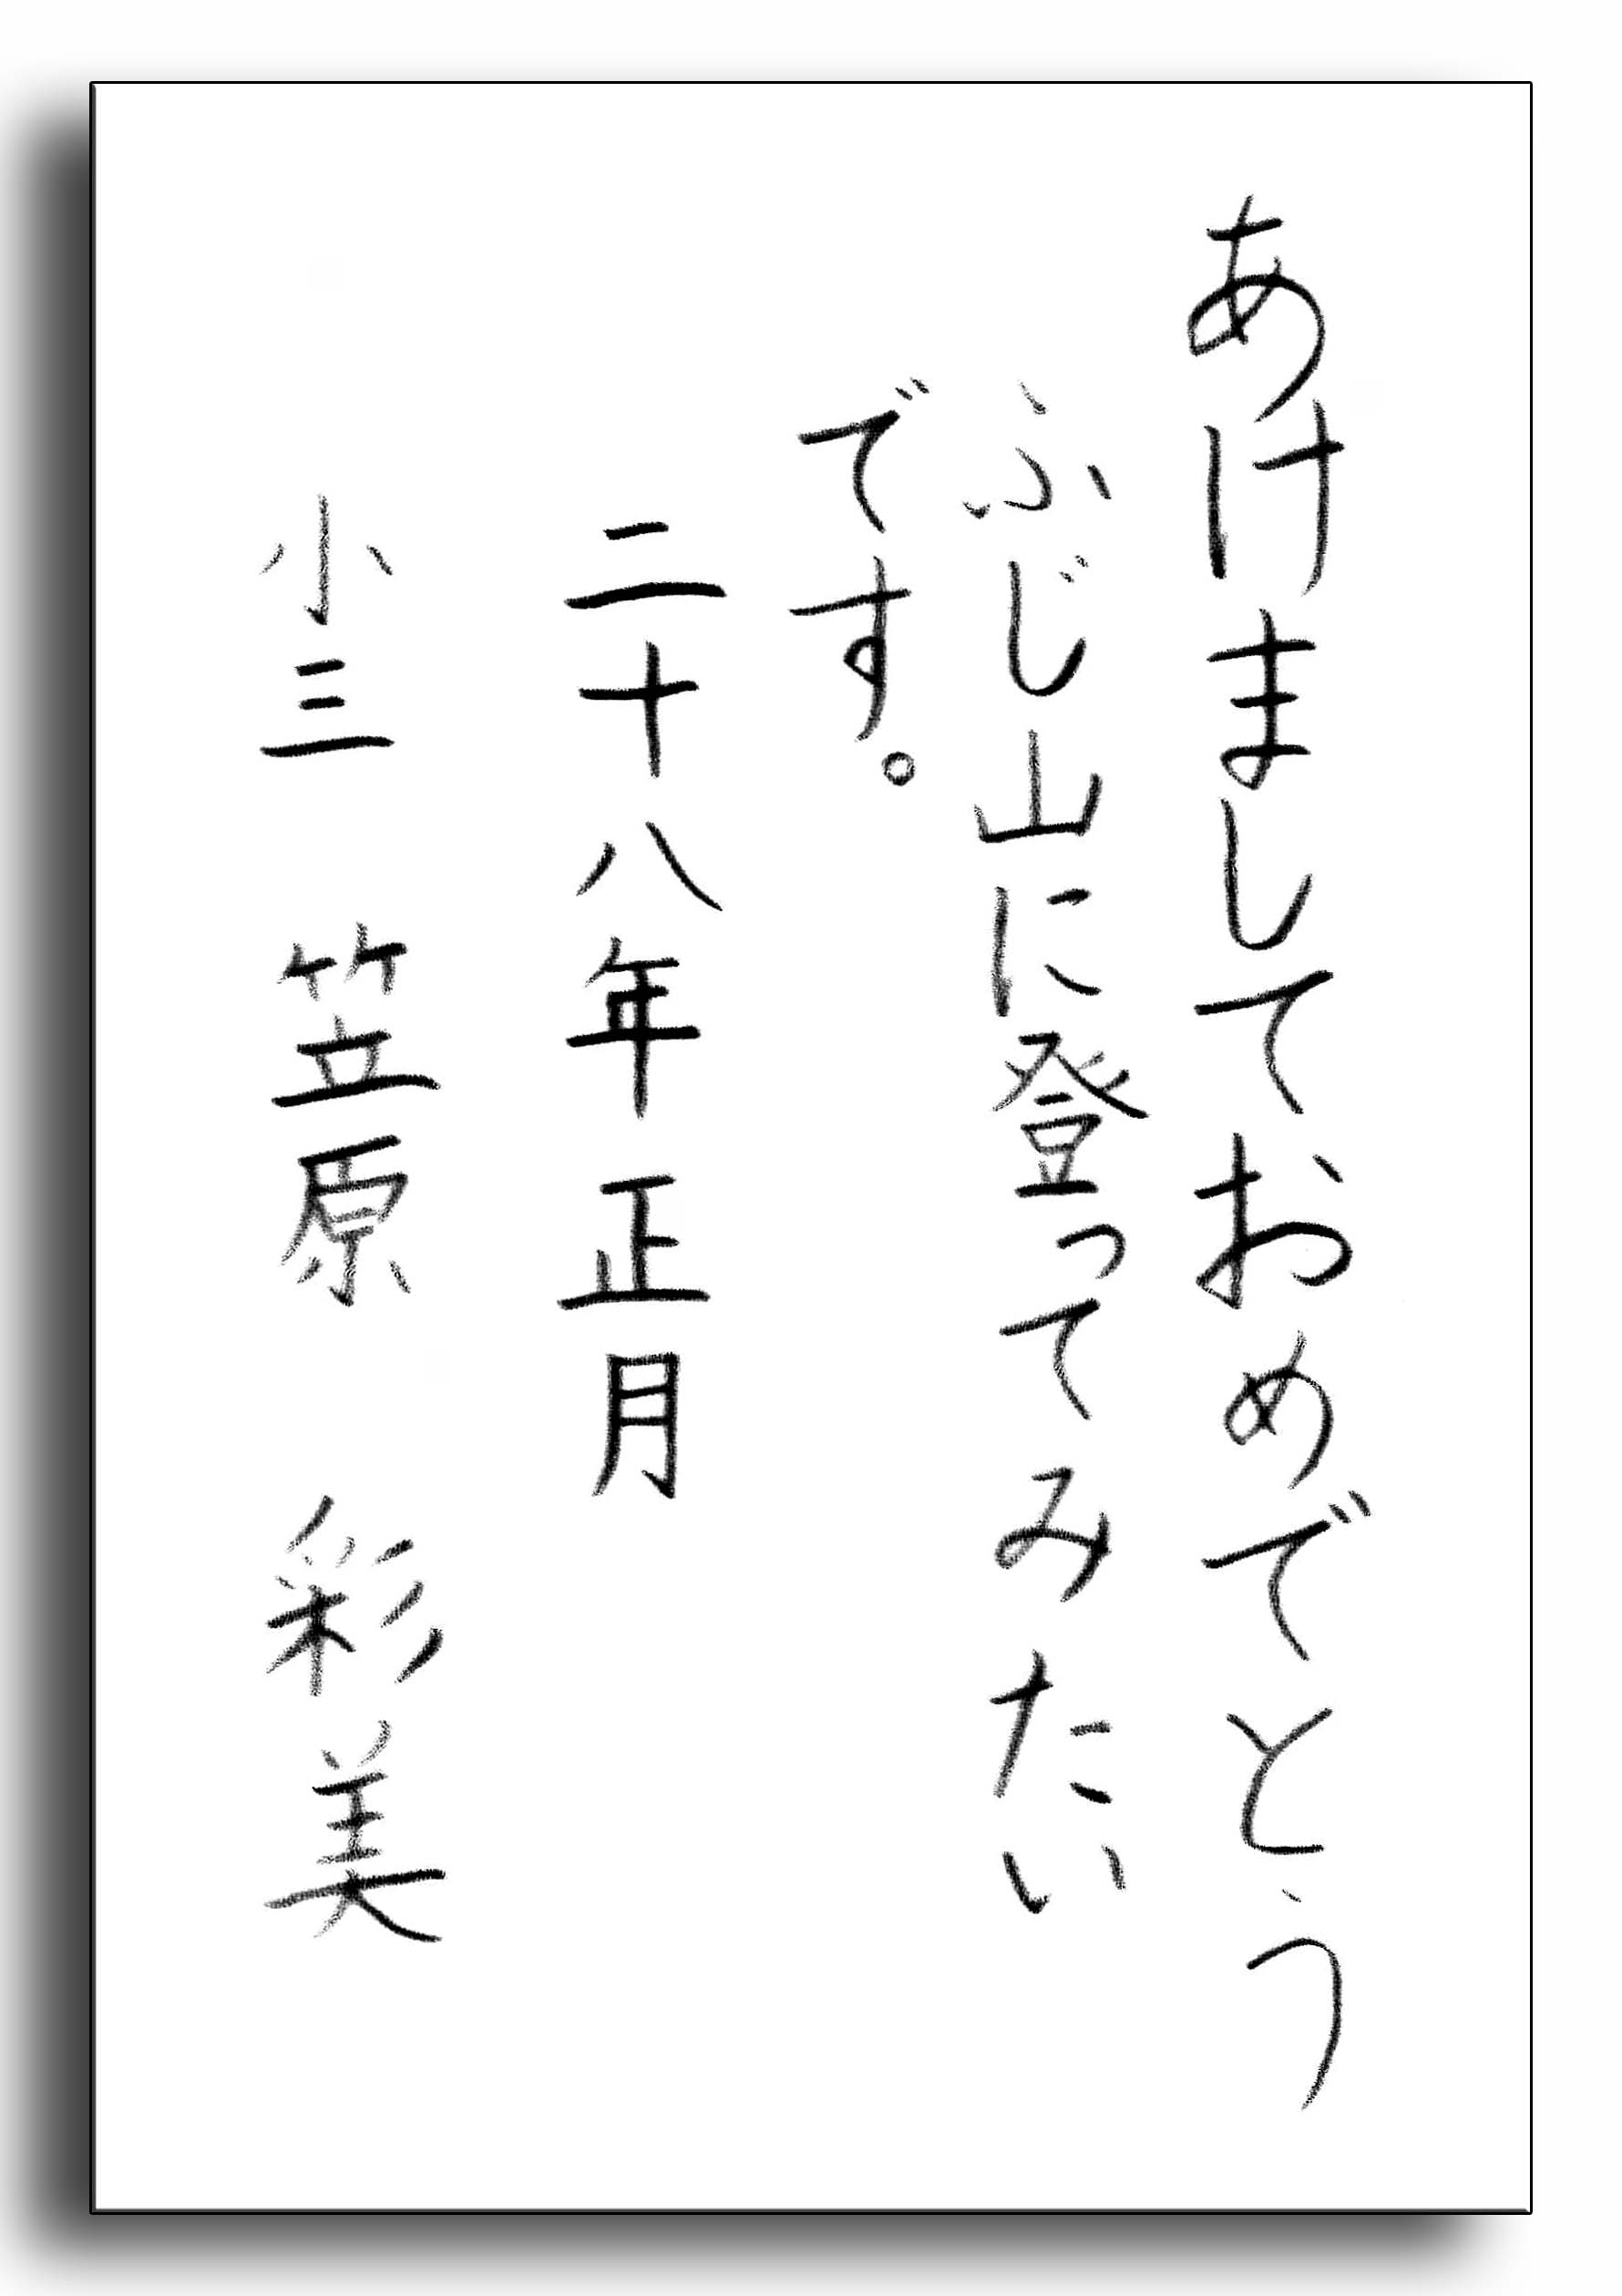 あけましておめでとう
ふじ山に登ってみたい
です。
二十八年正月
小三　笠原　彩美